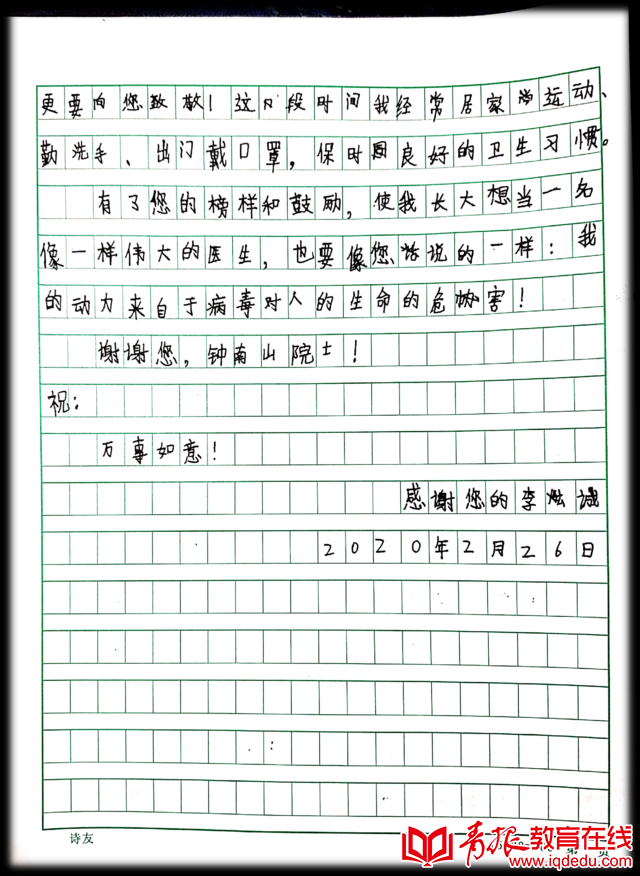 更要向您致敬！这段时间我经常居家运动、
勤洗手、出门戴口罩，保时良好的卫生习惯。
有了您的榜样和鼓励，使我长大想当一名
像一样伟大的医生，也要像您说的一样：我
的动力来自于病毒对人的生命的危害！
谢谢您，钟南山院士！
祝：
万事如意！
感谢您的李
2020年2月26日
诗友
青报教育在线
www.iqdedu.com